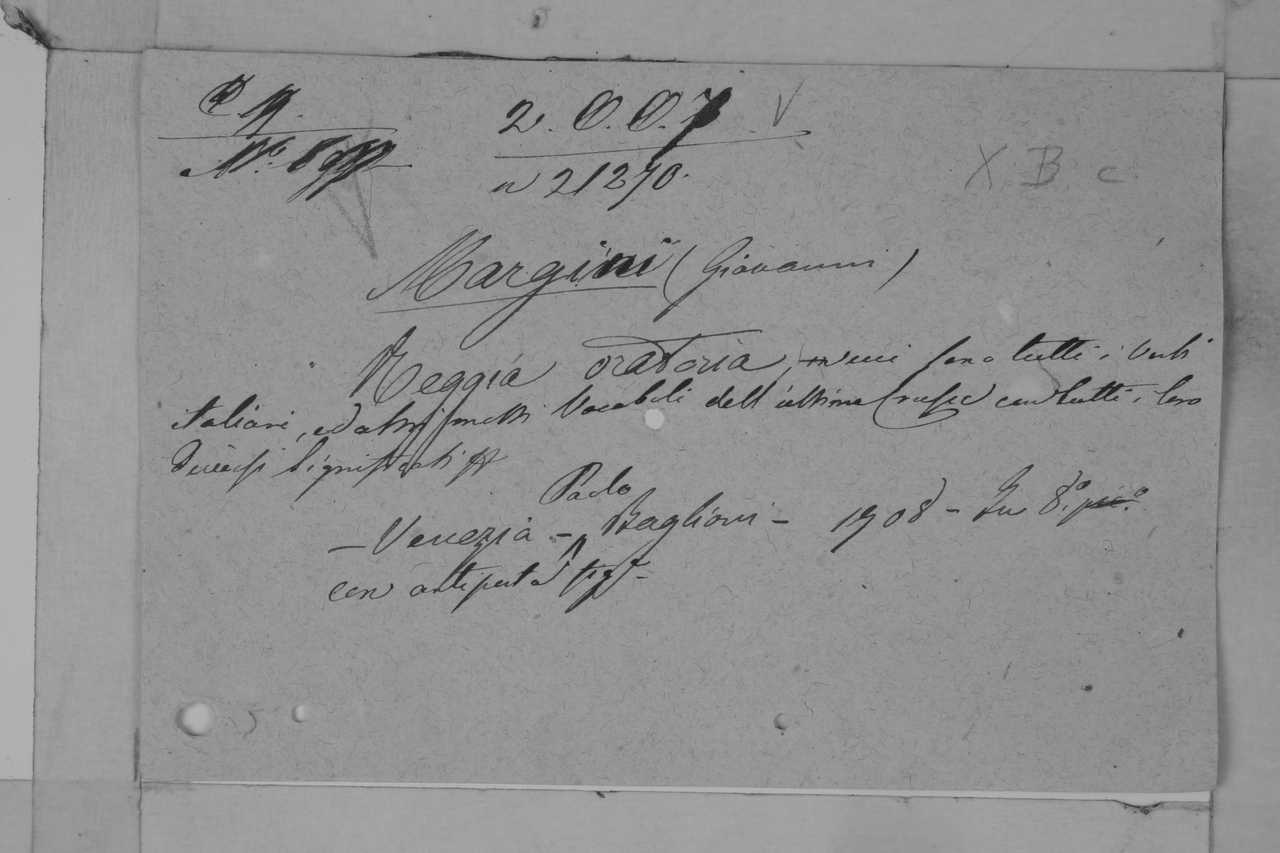 2. O. O. 7. V
n 21270.
X. B. c
Margini (Giovanni)
Reggia oratoria, in cui sono tutti i Verbi
italiani, ed altri Vocaboli dell'ultima Crusca con tutti i loro
diversi significati
Paolo
– Venezia – Baglioni – 1708 – In 8.º pic.º
con antiporta fig.